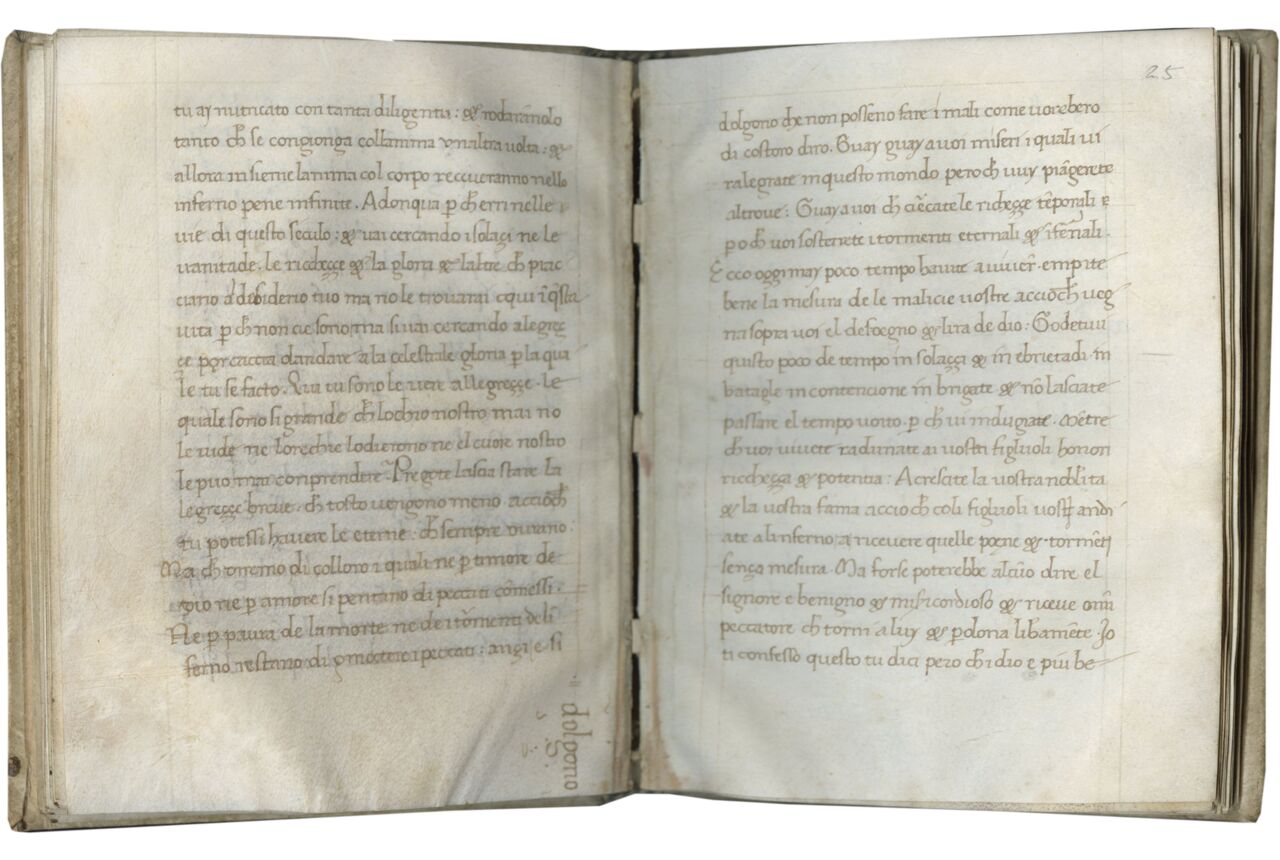 tu ay nutricato con tanta diligentia : & rodarānolo
tanto ch̄ se congionga collanima vnaltra volta : &
allora insieme lanima col corpo receueranno nello
inferno pene infinite . Adonqua p ch̄ erri nelle
vie di questo seculo : & vai cercando i solaçi ne le
uanitade . le richeççe & la gloria & laltre ch̄ piac
ciano al desiderio tuo ma no le trouarai
uita p ch̄ non cie sono, ma si uai cercando alegreç
çe procaccia dandare a la celestiale gloria p la qua
le tu se facto . iui sono le uere allegreççe . le
quale sono si grande ch̄ lochio nostro mai no
le uide ne lorechie lodierono ne el cuore nostro
le puo mai conprendere . Pregote lascia stare la
legreççe breue . ch̄ tosto uengono meno . acciochh̄
tu potessi hauere le eterne . ch̄ sempre durano .
Ma ch̄ diremo di colloro i quali ne p timore de
dio ne p amore si pentano di peccati cōmessi .
Ne p paura de la morte ne de i tormenti deli
ferno restano di i peccati : angi e si
dolgono
25
dolgono che non posseno fare i mali come uorebero
di costoro diro . Guay guay a uoi miseri i quali ui
ralegrate in questo mondo pero ch̄ vuy piāgerete
altroue : Guay a uoi ch̄ ciercate le richeççe tēporali
po ch̄ uoi sosterrete i tormenti eternali & īfernali .
Ecco oggi may poco tempo hauite a uiuere . empite
bene la mesura de le malicie uostre acciochh̄ ueg
na sopra uoi el desdegno & lira de dio : Godetiui
quisto poco de tempo in solaççi & in ebrieta di in
batagle in contencione in brigate & nō lasciate
passare el tempo uoito . p ch̄ ui indugiate . mētre
ch̄ uoi uiuete radunate ai uostri figliuoli honori
richeçça & potentia : Acrescite la uostra nobilita
& la uostra fama accio ch̄ coli figliuoli uostri andi
ate al inferno a ricevere quelle poene & tormēti
sença mesura . Ma forse poterebbe alcūo dire el
signore e benigno & misicordioso & riceve omi
peccatore ch̄ torni a luy & pdona libamēte . Io
ti confesso questo tu dici pero ch̄ idio e piu be